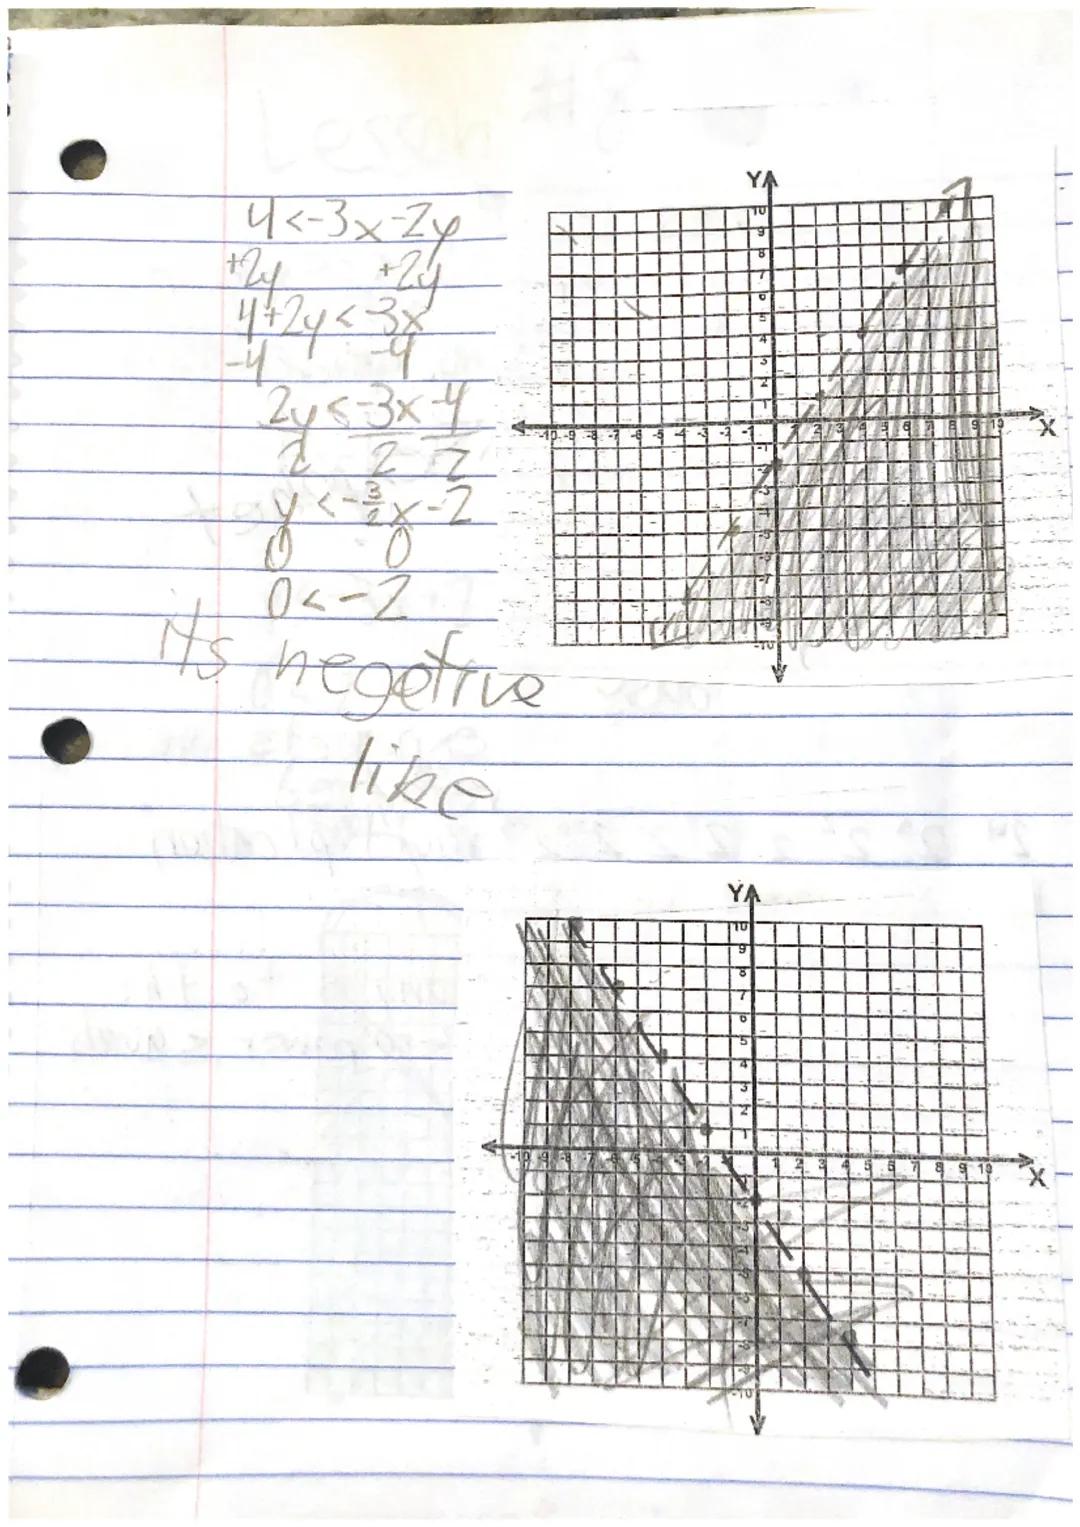 4<-3x-2y
+2y +2y
4+2y<-3x
-4 -4
2y<-3x-4
2 2 2
y<-3/2x-2
0 0
0<-2
its negetive
like
Y
10
9
8
7
6
5
4
3
2
1
-10 -9 -8 -7 -6 -5 -4 -3 -2 -1 1 2 3 4 5 6 7 8 9 10 X
-1
-2
-3
-5
-6
-7
-8
-9
-10
Y
10
9
8
7
6
5
4
3
2
1
-10 -9 -8 -7 -3 -2 1 2 3 4 5 6 7 8 9 10 X
-10